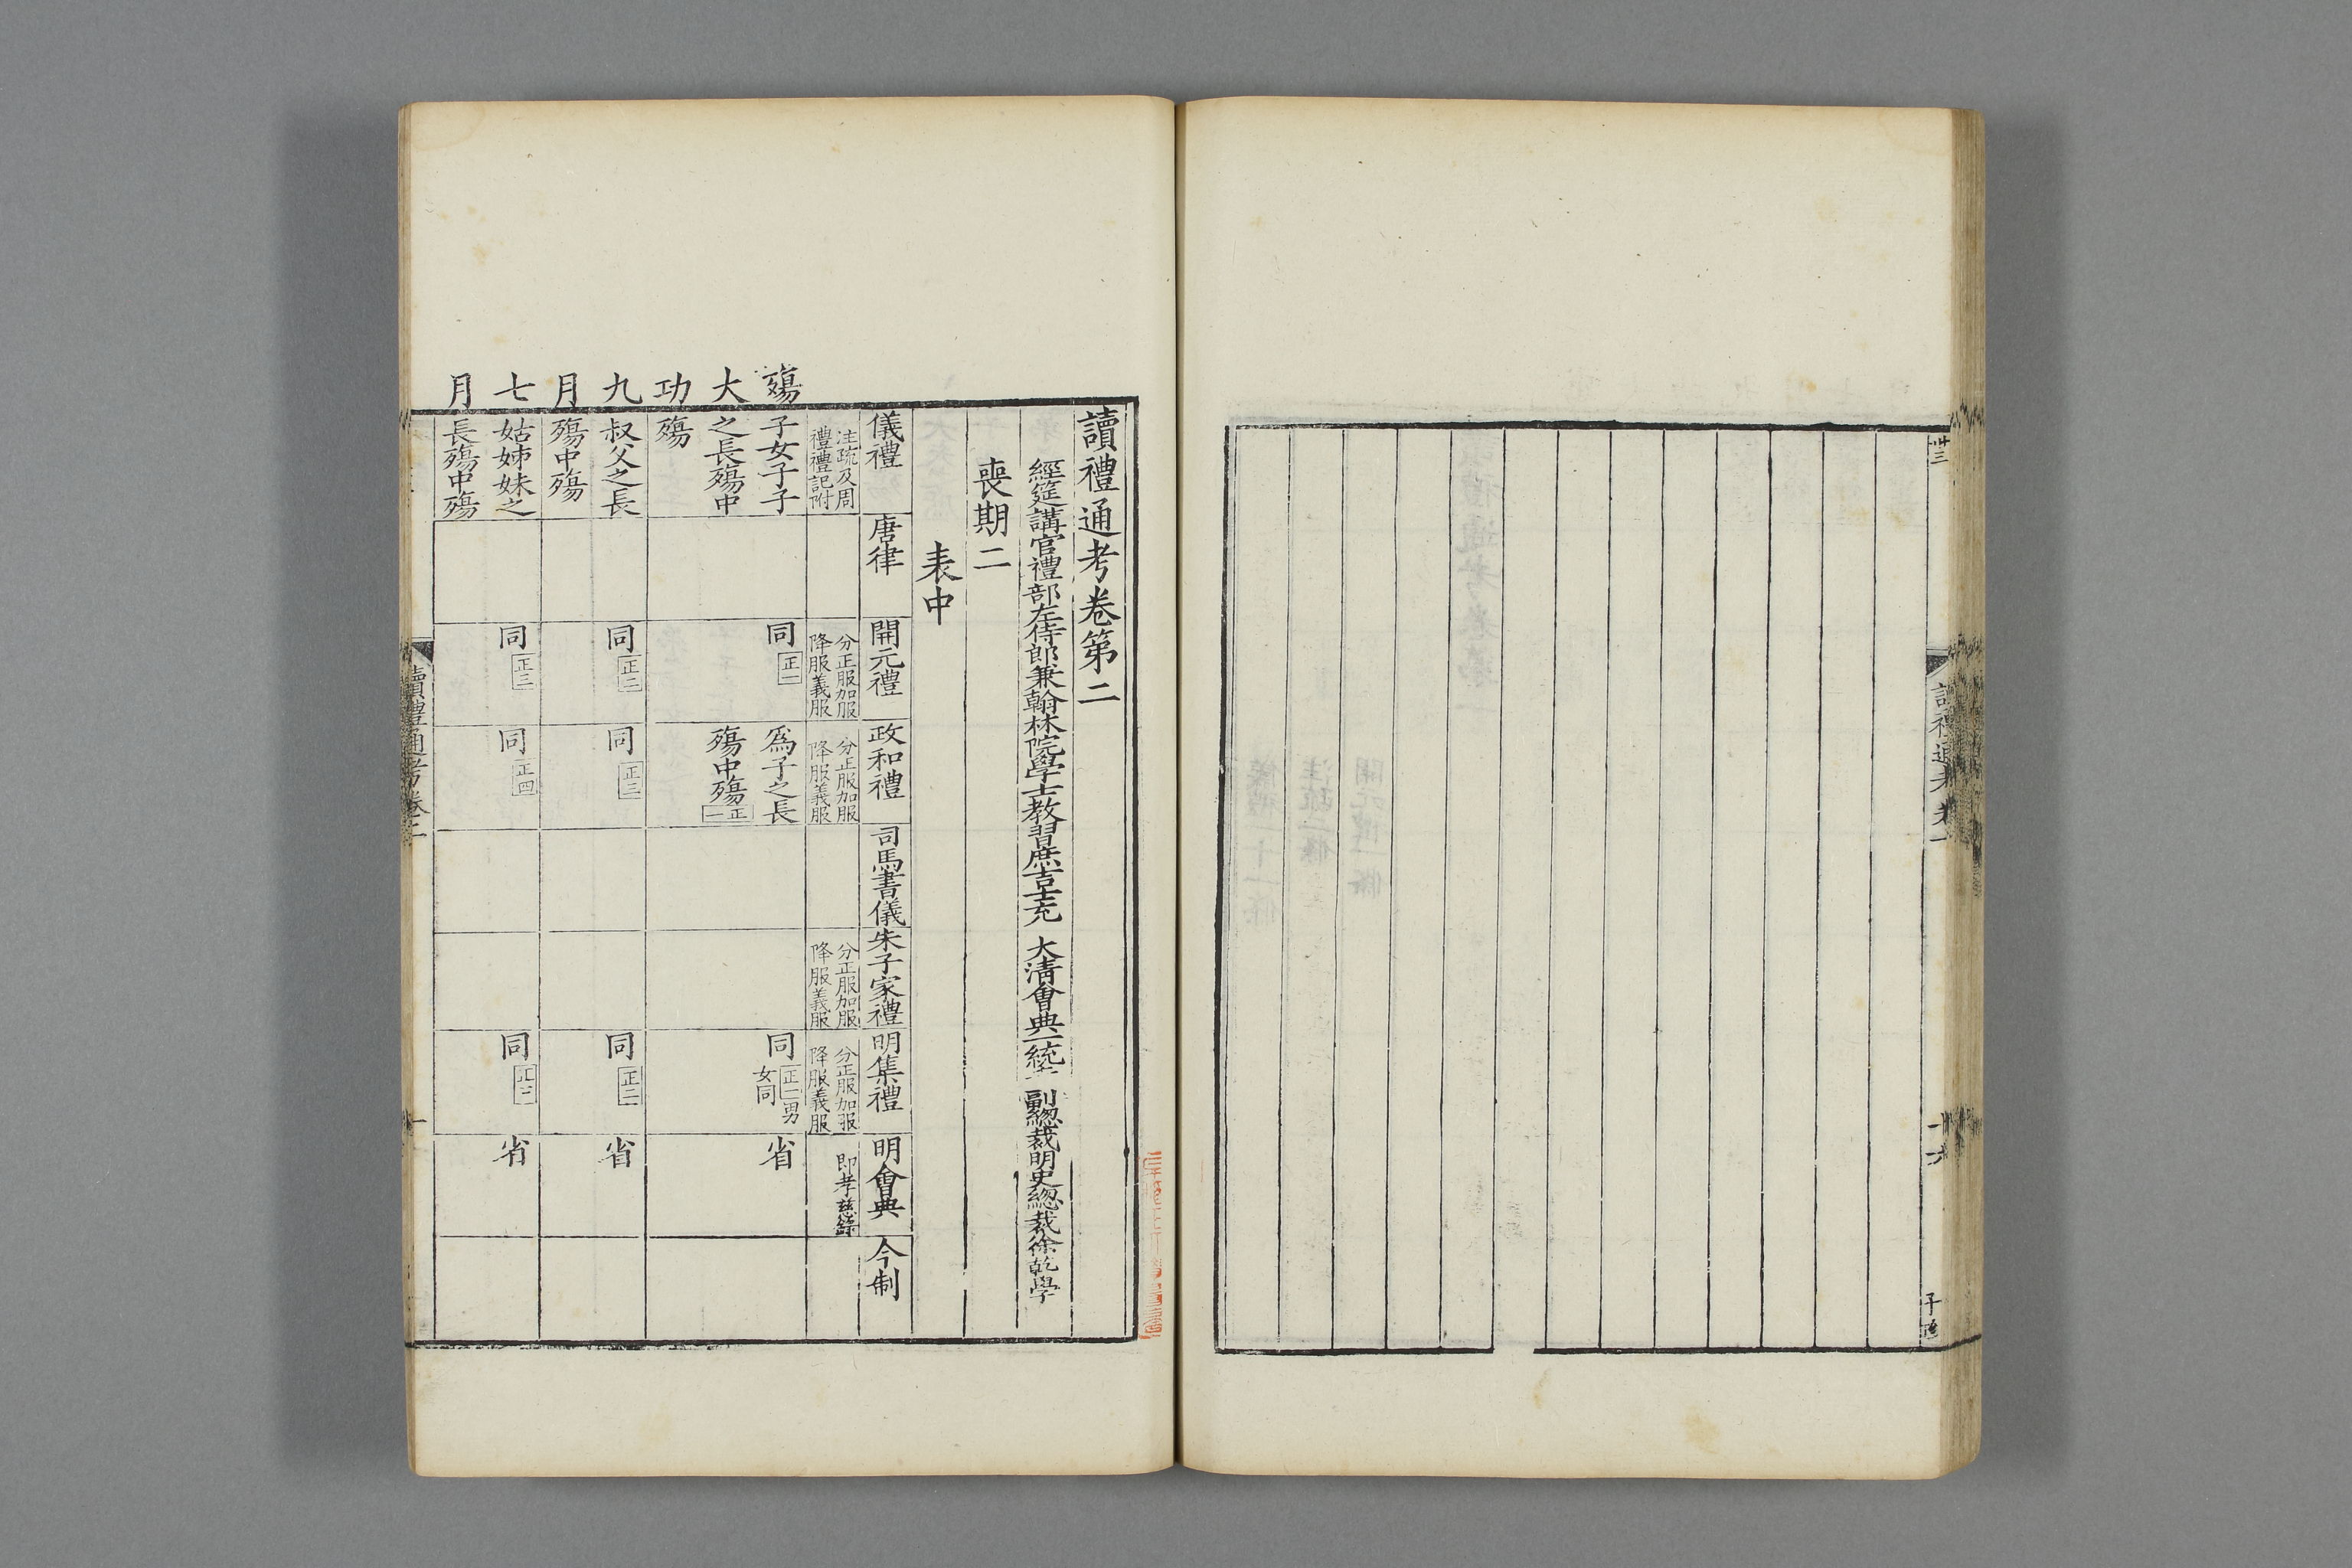 讀禮通考卷第二
經筵講官禮部左侍郎兼翰林院學士教習庶吉士充 大清會典一統志副總裁明史總裁徐乾學
喪期二
表中
儀禮 唐律 開元禮 政和禮 司馬書儀 朱子家禮 明集禮 明會典 今制
注疏及周禮禮記附 分正服加服降服義服 分正服加服降服義服 分正服加服降服義服 分正服加服降服義服 即孝慈錄
殤大功九月七月
子女子子之長殤中殤 同 正一 爲子之長殤中殤 正一 同 正一男女同 省
叔父之長殤中殤 同 正二 同 正三 同 正二 省
姑姊妹之長殤中殤 同 正三 同 正四 同 正三 省
讀禮通考卷二
一
讀禮通考卷一
十六